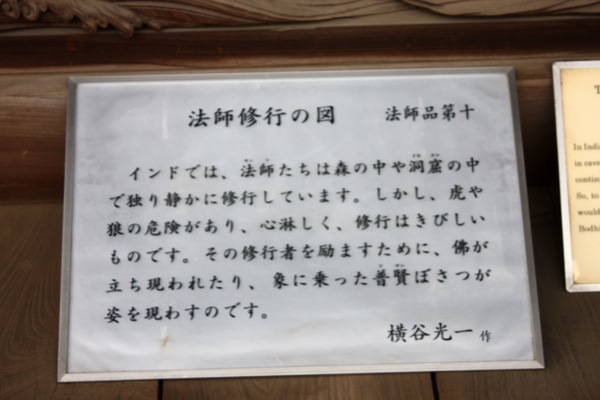 法師修行の図 法師品第十
インドでは、法師たちは森の中や洞窟の中
で独り静かに修行しています。しかし、虎や
狼の危険があり、心淋しく、修行はきびしい
ものです。その修行者を励ますために、佛が
立ち現われたり、象に乗った普賢ぼさつが
姿を現わすのです。
横谷光一 作
In Indi
in cave
contin
So, to
would
Bodhi